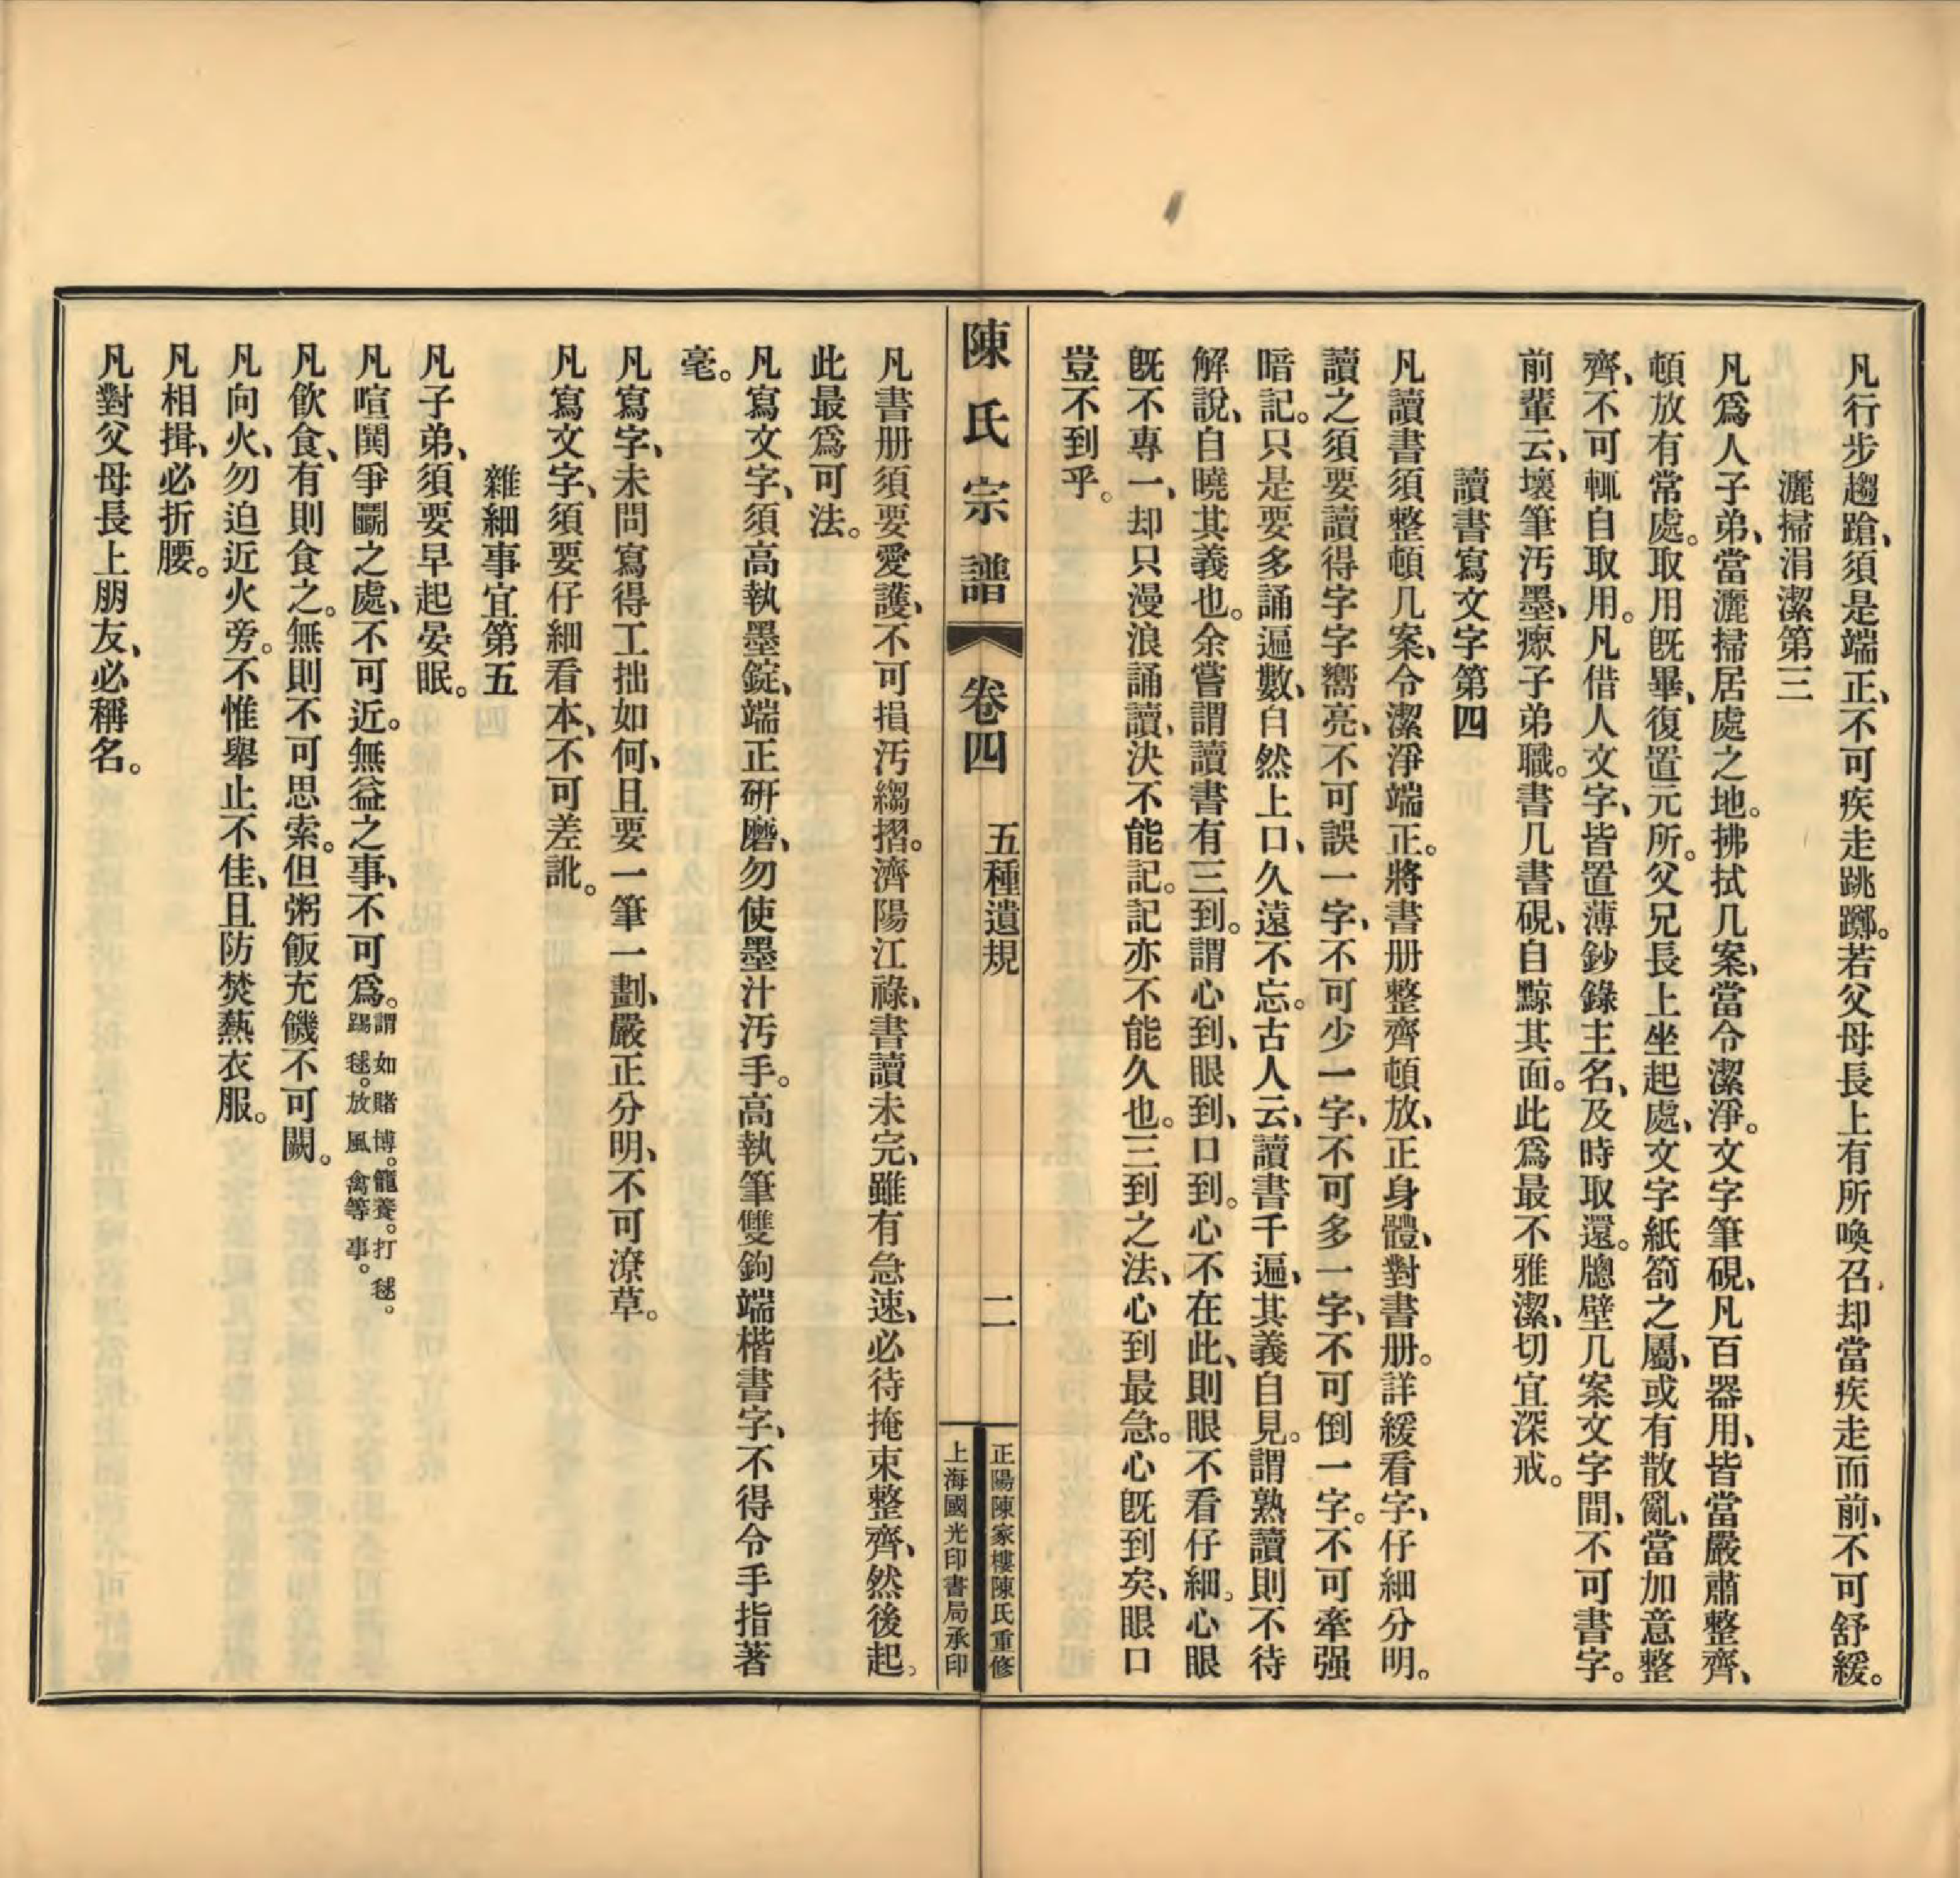 凡行步趨蹌、須是端正、不可疾走跳躑。若父母長上有所喚召却當疾走而前、不可舒緩。
灑掃涓潔第三
凡爲人子弟、當灑掃居處之地。拂拭几案、當令潔淨。文字筆硯、凡百器用、皆當嚴肅整齊、
頓放有常處。取用旣畢、復置元所。父兄長上坐起處、文字紙劄之屬、或有散亂、當加意整
齊、不可輒自取用。凡借人文字、皆置薄鈔錄主名、及時取還。牕壁几案文字間、不可書字。
前輩云、壞筆汚墨、瘝子弟職。書几書硯、自黥其面。此爲最不雅潔、切宜深戒。
讀書寫文字第四
凡讀書須整頓几案、令潔淨端正。將書册整齊頓放、正身體、對書册。詳緩看字、仔細分明。
讀之須要讀得字字嚮亮、不可誤一字、不可少一字、不可多一字、不可倒一字。不可牽强
暗記。只是要多誦遍數、自然上口、久遠不忘。古人云、讀書千遍、其義自見。謂熟讀則不待
解說、自曉其義也。余嘗謂讀書有三到。謂心到、眼到、口到。心不在此、則眼不看仔細。心眼
旣不專一、却只漫浪誦讀、決不能記。記亦不能久也。三到之法、心到最急。心旣到矣、眼口
豈不到乎。
陳氏宗譜 卷四 五種遺規 二
正陽陳家樓陳氏重修
上海國光印書局承印
凡書册須要愛護、不可損汚縐摺。濟陽江祿、書讀未完、雖有急速、必待掩束整齊、然後起。
此最爲可法。
凡寫文字、須高執墨錠、端正硏磨、勿使墨汁汚手。高執筆雙鉤端楷書字、不得令手指著
毫。
凡寫字、未問寫得工拙如何、且要一筆一劃、嚴正分明、不可潦草。
凡寫文字、須要仔細看本、不可差訛。
雜細事宜第五
凡子弟、須要早起晏眠。
凡喧鬨爭鬭之處、不可近。無益之事、不可爲。謂如賭博。籠養。打毬。踢毬。放風禽等事。
凡飮食、有則食之。無則不可思索。但粥飯充饑不可闕。
凡向火、勿迫近火旁。不惟舉止不佳、且防焚爇衣服。
凡相揖、必折腰。
凡對父母長上朋友、必稱名。